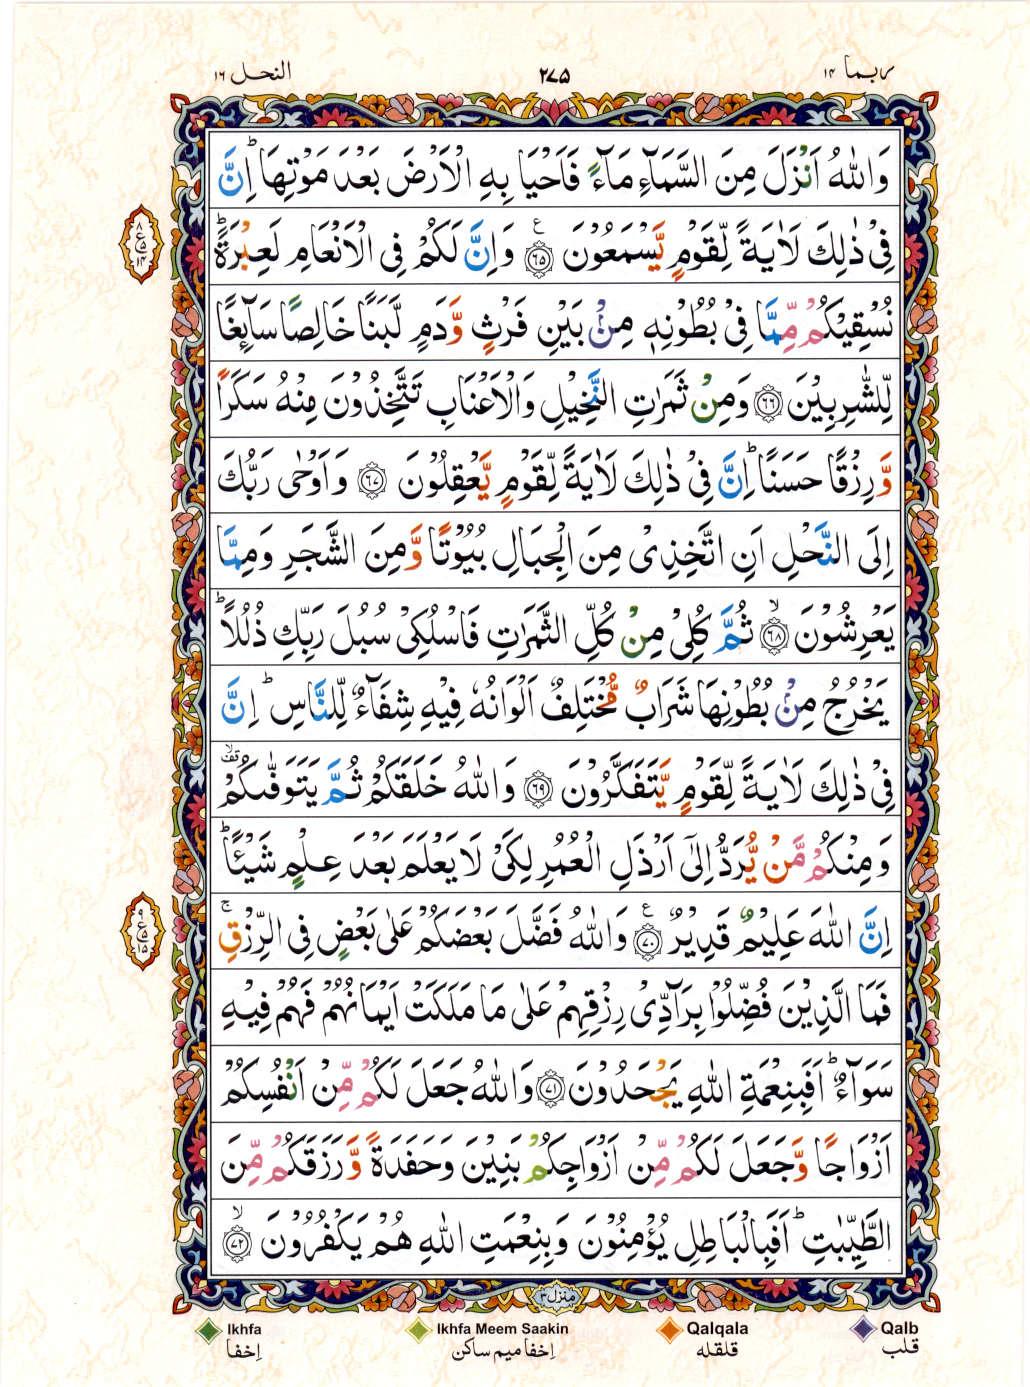 ربما ۱۴
۲۷۵
النحل ۱۶
وَاللّٰهُ اَنْزَلَ مِنَ السَّمَآءِ مَآءً فَاَحْيَا بِهِ الْاَرْضَ بَعْدَ مَوْتِهَا ؕ اِنَّ
فِىْ ذٰلِكَ لَاٰيَةً لِّقَوْمٍ يَّسْمَعُوْنَ ﴿۶۵﴾ ع وَاِنَّ لَكُمْ فِى الْاَنْعَامِ لَعِبْرَةً ؕ
نُسْقِيْكُمْ مِّمَّا فِىْ بُطُوْنِهٖ مِنْۢ بَيْنِ فَرْثٍ وَّدَمٍ لَّبَنًا خَالِصًا سَآئِغًا
لِّلشّٰرِبِيْنَ ﴿۶۶﴾ وَمِنْ ثَمَرٰتِ النَّخِيْلِ وَالْاَعْنَابِ تَتَّخِذُوْنَ مِنْهُ سَكَرًا
وَّرِزْقًا حَسَنًا ؕ اِنَّ فِىْ ذٰلِكَ لَاٰيَةً لِّقَوْمٍ يَّعْقِلُوْنَ ﴿۶۷﴾ وَاَوْحٰى رَبُّكَ
اِلَى النَّحْلِ اَنِ اتَّخِذِىْ مِنَ الْجِبَالِ بُيُوْتًا وَّمِنَ الشَّجَرِ وَمِمَّا
يَعْرِشُوْنَ ۙ﴿۶۸﴾ ثُمَّ كُلِىْ مِنْ كُلِّ الثَّمَرٰتِ فَاسْلُكِىْ سُبُلَ رَبِّكِ ذُلُلًا ؕ
يَخْرُجُ مِنْۢ بُطُوْنِهَا شَرَابٌ مُّخْتَلِفٌ اَلْوَانُهٗ فِيْهِ شِفَآءٌ لِّلنَّاسِ ؕ اِنَّ
فِىْ ذٰلِكَ لَاٰيَةً لِّقَوْمٍ يَّتَفَكَّرُوْنَ ﴿۶۹﴾ وَاللّٰهُ خَلَقَكُمْ ثُمَّ يَتَوَفّٰٮكُمْ ۙ قف
وَمِنْكُمْ مَّنْ يُّرَدُّ اِلٰٓى اَرْذَلِ الْعُمُرِ لِكَىْ لَا يَعْلَمَ بَعْدَ عِلْمٍ شَيْئًا ؕ
اِنَّ اللّٰهَ عَلِيْمٌ قَدِيْرٌ ﴿۷۰﴾ ع وَاللّٰهُ فَضَّلَ بَعْضَكُمْ عَلٰى بَعْضٍ فِى الرِّزْقِ ۚ
فَمَا الَّذِيْنَ فُضِّلُوْا بِرَآدِّىْ رِزْقِهِمْ عَلٰى مَا مَلَكَتْ اَيْمَانُهُمْ فَهُمْ فِيْهِ
سَوَآءٌ ؕ اَفَبِنِعْمَةِ اللّٰهِ يَجْحَدُوْنَ ﴿۷۱﴾ وَاللّٰهُ جَعَلَ لَكُمْ مِّنْ اَنْفُسِكُمْ
اَزْوَاجًا وَّجَعَلَ لَكُمْ مِّنْ اَزْوَاجِكُمْ بَنِيْنَ وَحَفَدَةً وَّرَزَقَكُمْ مِّنَ
الطَّيِّبٰتِ ؕ اَفَبِالْبَاطِلِ يُؤْمِنُوْنَ وَبِنِعْمَتِ اللّٰهِ هُمْ يَكْفُرُوْنَ ۙ﴿۷۲﴾
منزل ۳
Ikhfa
Ikhfa Meem Saakin
Qalqala
Qalb
اِخفا
اِخفا میم ساکن
قلقله
قلب